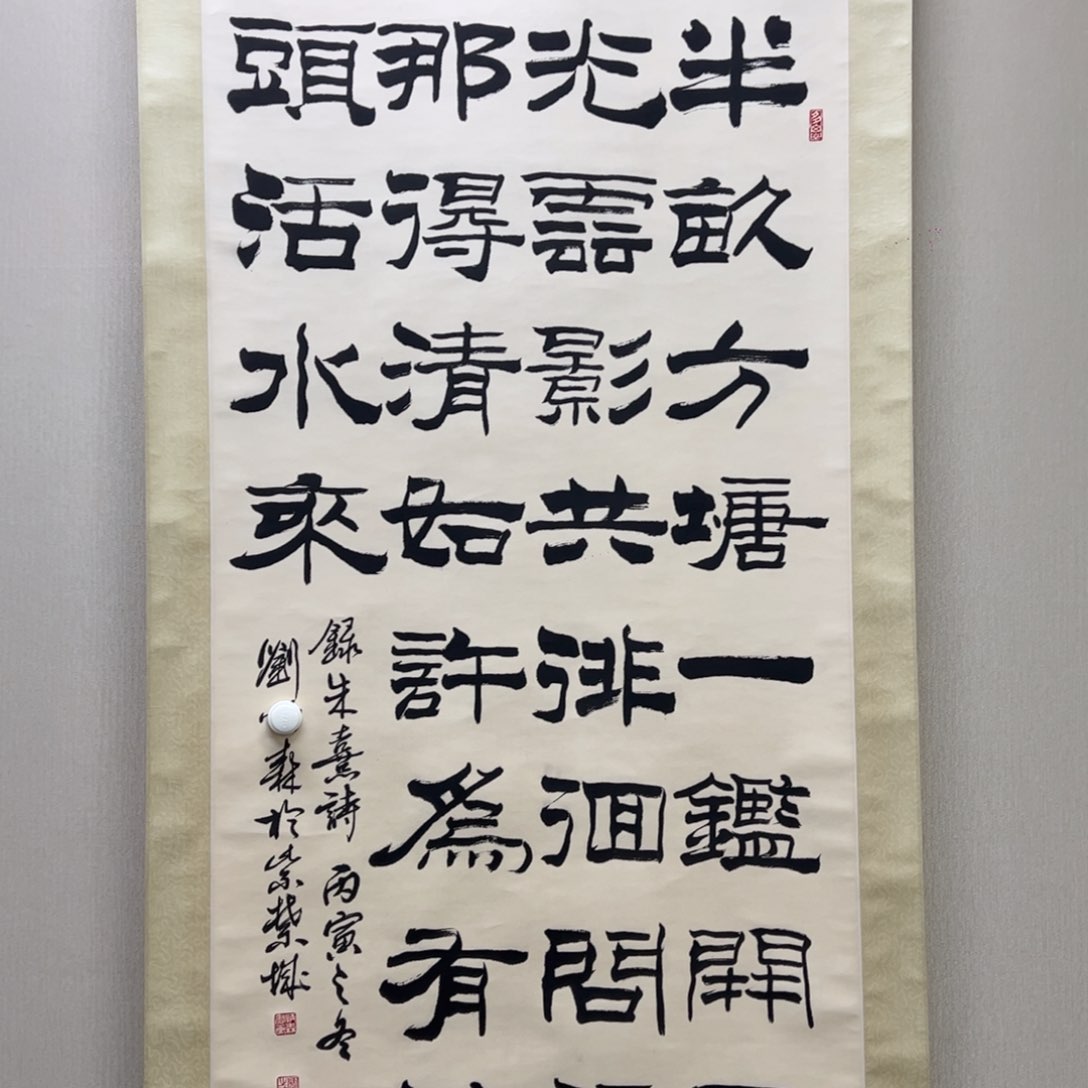 半畝方塘一鑑開
光雲影共徘徊問
那得清如許為有
頭活水來
錄朱熹詩 丙寅之冬
劉 森於紫禁城